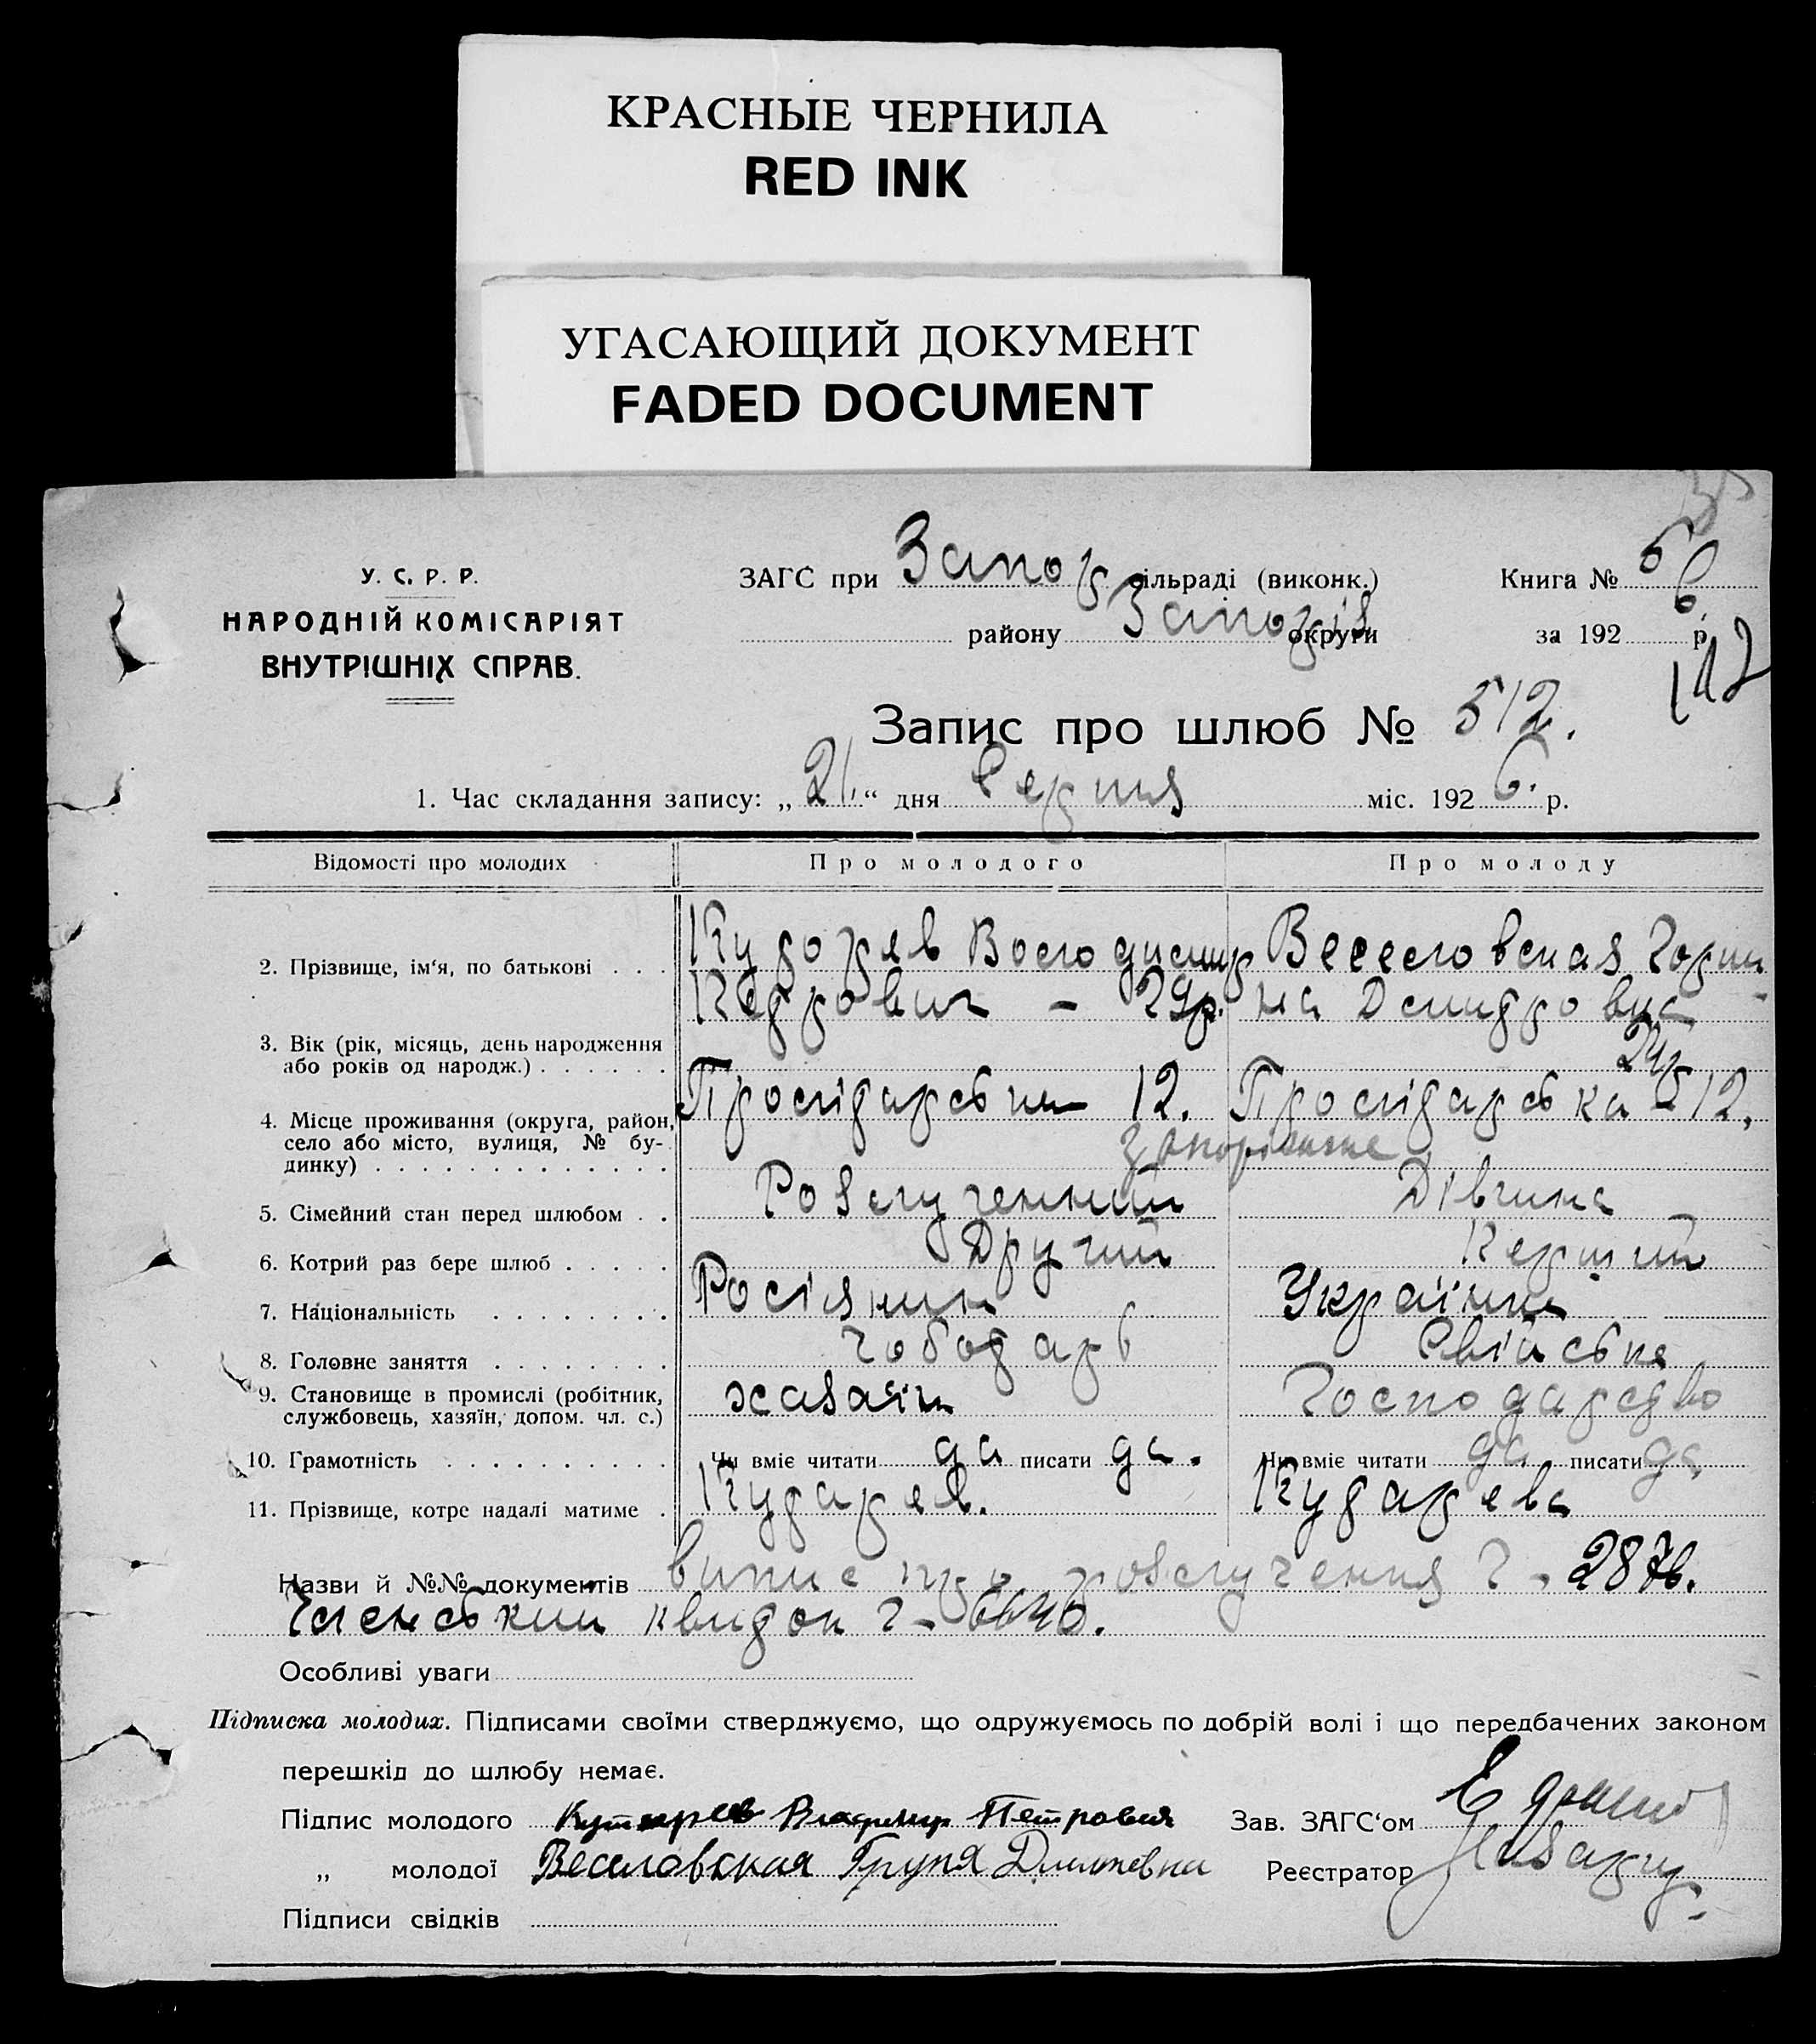 КРАСНЫЕ ЧЕРНИЛА
RED INK
УГАСАЮЩИЙ ДОКУМЕНТ
FADED DOCUMENT
У. С. Р. Р.
НАРОДНІЙ КОМІСАРІЯТ
ВНУТРІШНІХ СПРАВ.
ЗАГС при Запор сільраді (виконк.)
району Запоріз округи
Книга № 5
за 192 6. р.
112
Запис про шлюб № 512.
1. Час складання запису: „ 21. “ дня Серпня міс. 192 6. р.
Відомості про молодих
Про молодого
Про молоду
2. Прізвище, ім‘я, по батькові . . .
Володимир
Петрович – 29р.
3. Вік (рік, місяць, день народження
або років од народж.) . . . . . .
4. Місце проживання (округа, район,
село або місто, вулиця, № бу-
динку) . . . . . . . . . . . . .
Пролітарська 12.
Пролітарська – 12.
Запоріжже
5. Сімейний стан перед шлюбом . .
Розлученний
Дівчина
6. Котрий раз бере шлюб . . . . .
Другий
Перший
7. Національність . . . . . . . .
Росіянин
Українка
8. Головне заняття . . . . . . . .
Чоботарь
Свійське
9. Становище в промислі (робітник,
службовець, хазяїн, допом. чл. с.)
хазяїн
Господарство
10. Грамотність . . . . . . . . . .
Чи вміє читати да писати да.
Чи вміє читати да писати да
11. Прізвище, котре надалі матиме .
Кутарев.
Кутарева
Назви й №№ документів випис про розлучення ч – 2876.
Членський квиток ч –
Особливі уваги
Підписка молодих. Підписами своїми стверджуємо, що одружуємось по добрій волі і що передбачених законом
перешкід до шлюбу немає.
Підпис молодого Кутарев Владимир Петрович
Зав. ЗАГС‘ом
„ молодої Веселовская Груня
Реєстратор
Підписи свідків